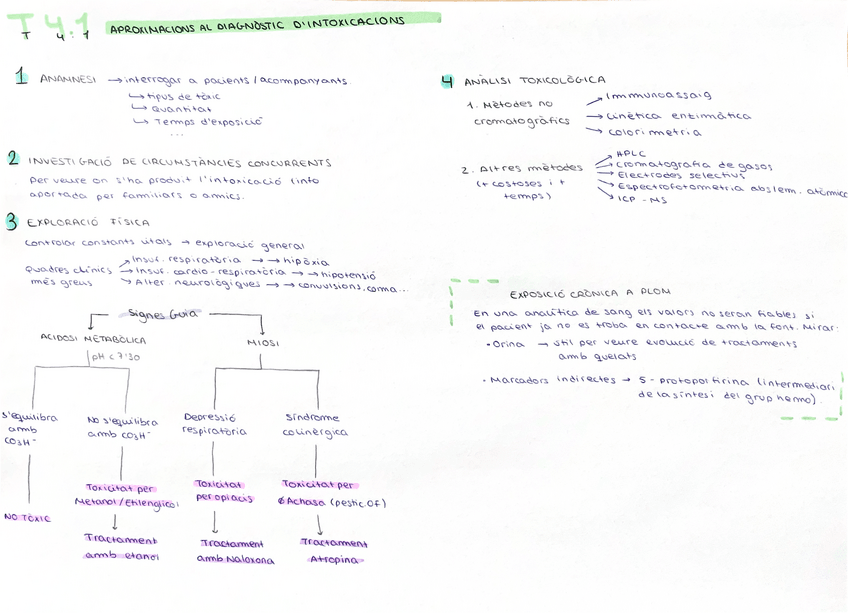 T 4.1
T 4.1
APROXIMACIONS AL DIAGNÒSTIC D'INTOXICACIONS
1 ANAMNESI → interrogar a pacients / acompanyants.
↳ tipus de tòxic
↳ Quantitat
↳ Temps d'exposició
...
2 INVESTIGACIÓ DE CIRCUMSTÀNCIES CONCURRENTS
Per veure on s'ha produit l'intoxicació (info
aportada per familiars o amics.
3 EXPLORACIÓ FÍSICA
Controlar constants vitals → exploració general
Quadres clínics
més greus
→ Insuf. respiratòria → → hipòxia
→ Insuf. cardio-respiratòria → → hipotensió
→ Alter. neurològiques → → convulsions, coma...
Signes Guia
ACIDOSI METABÒLICA
MIOSI
pH < 7'30
S'equilibra
amb
CO3H⁻
No s'equilibra
amb CO3H⁻
Depressió
respiratòria
Síndrome
colinèrgica
NO TÒXIC
Toxicitat per
Metanol / Etilenglicol
Toxicitat
per opiacis
Toxicitat per
Achasa (pestic. OF)
Tractament
amb etanol
Tractament
amb Naloxona
Tractament
Atropina
4 ANÀLISI TOXICOLÒGICA
1. Mètodes no
cromatogràfics
→ Immunoassaig
→ Cinètica enzimàtica
→ Colorimetria
2. Altres mètodes
(+ costoses i +
temps)
→ HPLC
→ Cromatografia de gasos
→ Electrodes selectius
→ Espectrofotometria abs/em. atòmica
→ ICP - MS
EXPOSICIÓ CRÒNICA A PLOM
En una analítica de sang els valors no seran fiables si
el pacient ja no es troba en contacte amb la font. Mirar:
• Orina → útil per veure evolució de tractaments
amb quelats
• Marcadors indirectes → 5-protoporfirina (intermediari
de la síntesi del grup hemo).